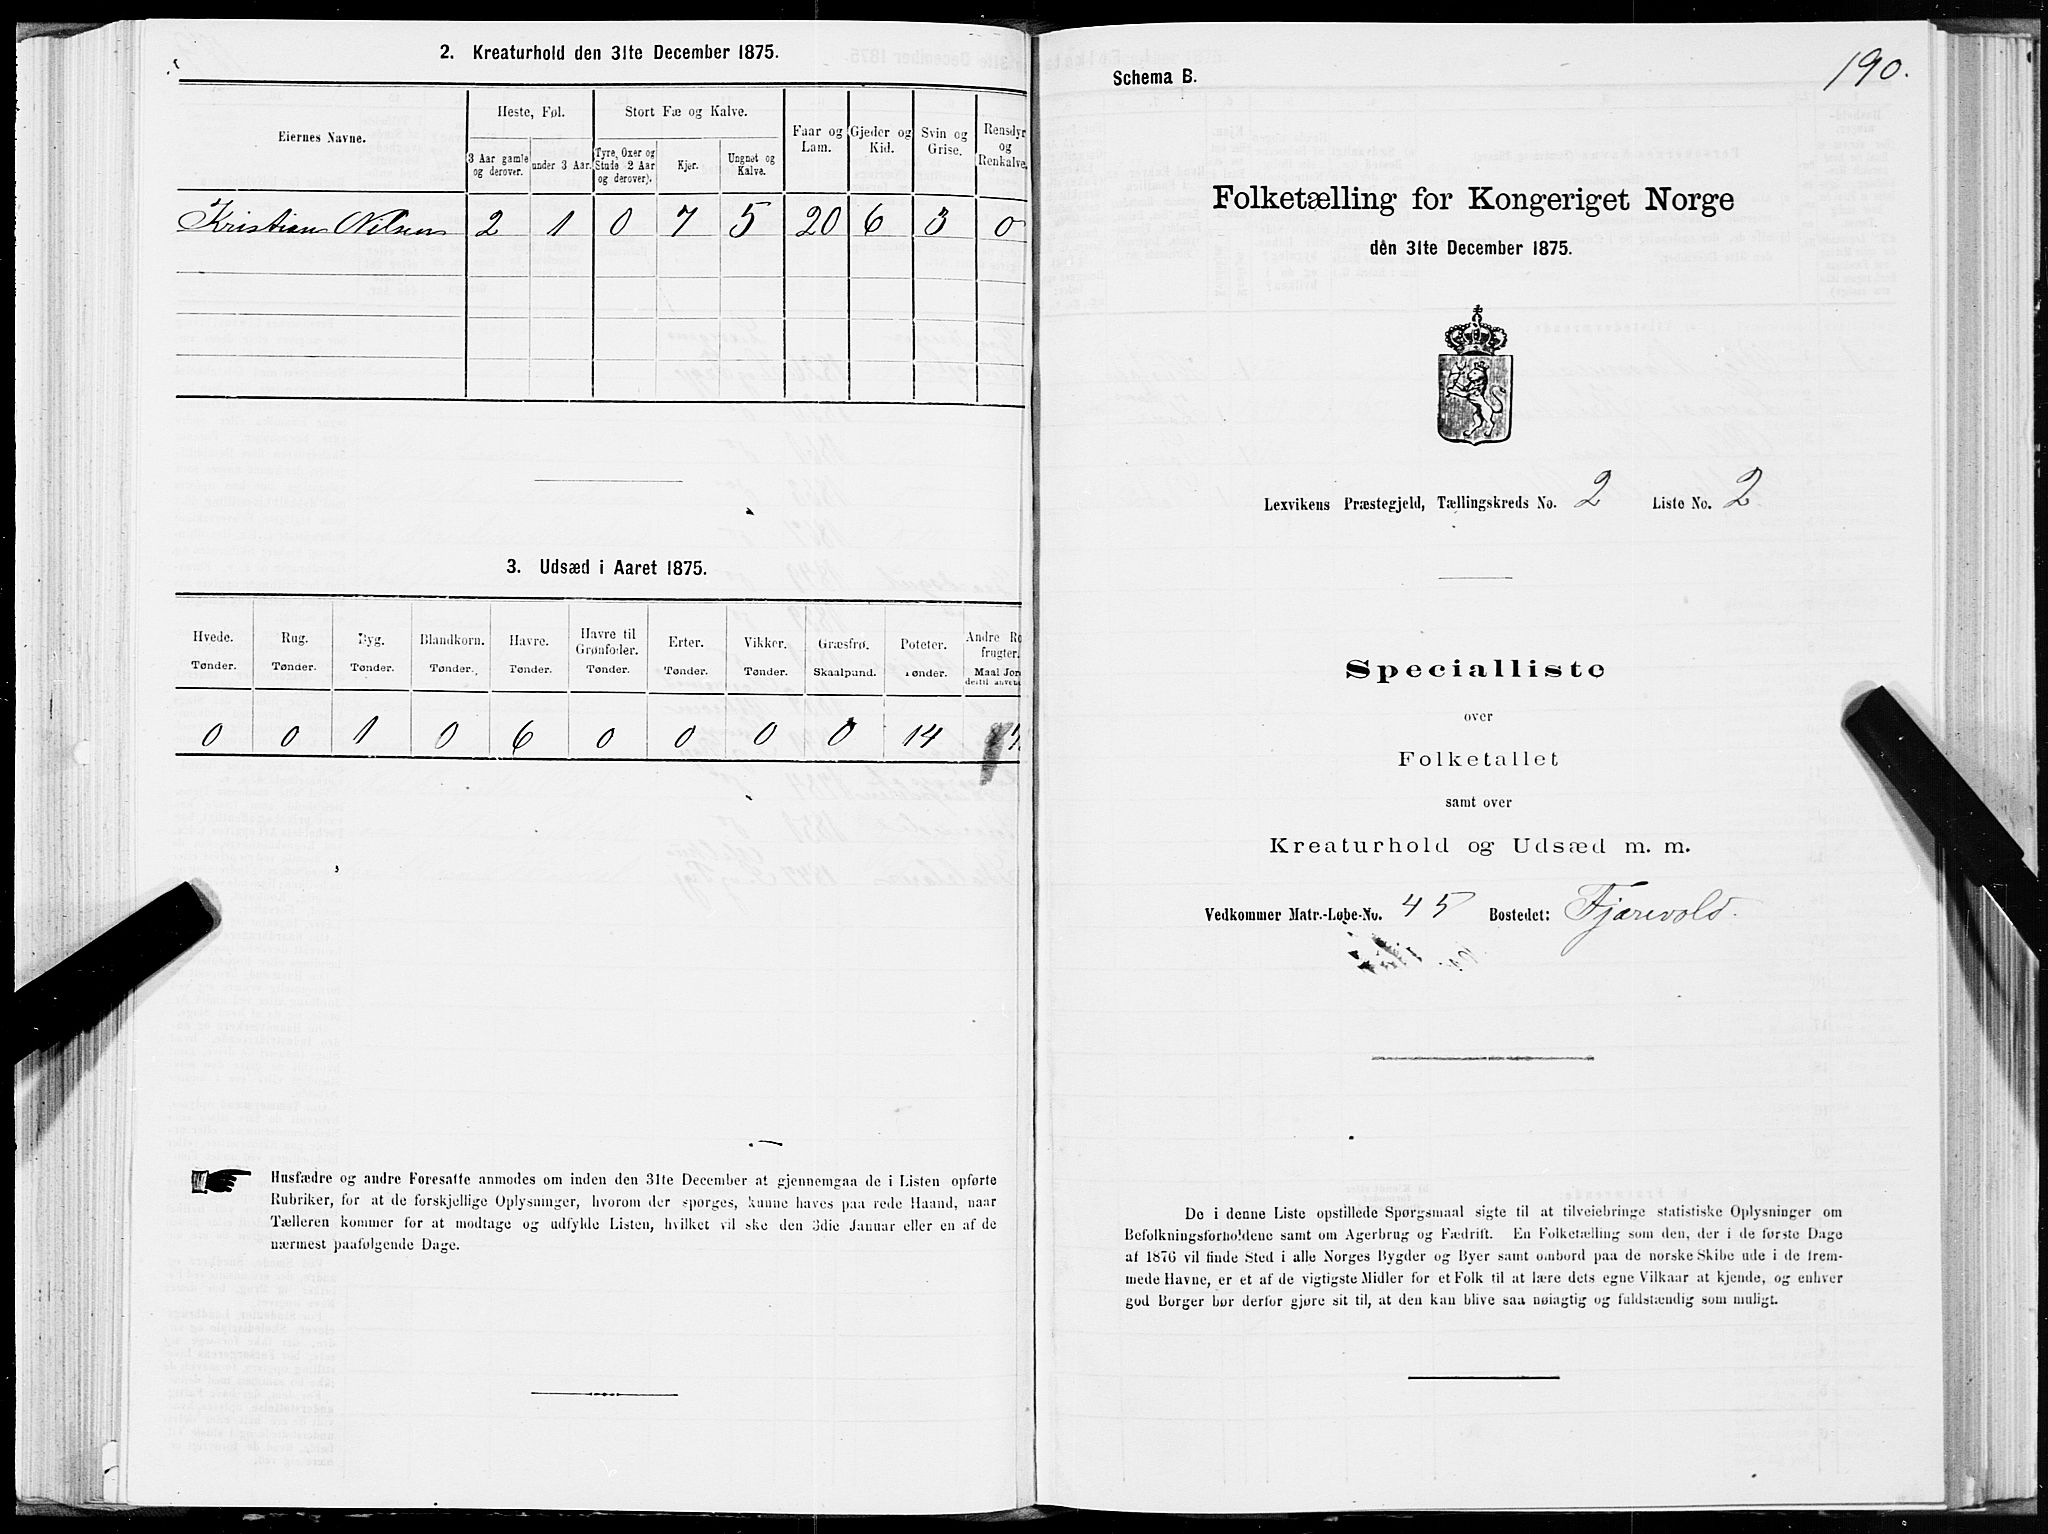 2. Kreaturhold den 31te December 1875.
Eiernes Navne.
Heste, Føl.
Stort Fæ og Kalve.
Faar og Lam.
Gjeder og Kid.
Svin og Grise.
Rensdyr og Renkalve.
3 Aar gamle og derover.
under 3 Aar.
Tyre, Oxer og Stude (2 Aar og derover).
Kjør.
Ungnøt og Kalve.
Kristian Nilsen 2 1 0 7 5 20 6 3 0
3. Udsæd i Aaret 1875.
Hvede. Rug. Byg. Blandkorn. Havre. Havre til Grønfoder. Erter. Vikker. Græsfrø. Poteter. Andre Ro
frugter.
Tønder. Tønder. Tønder. Tønder. Tønder. Tønder. Tønder. Tønder. Skaalpund. Tønder. Maal Jor
destil anvend
0 0 1 0 6 0 0 0 0 14
Husfædre og andre Foresatte anmodes om inden den 31te December at gjennemgaa de i Listen opførte
Rubriker, for at de forskjellige Oplysninger, hvorom der spørges, kunne haves paa rede Haand, naar
Tælleren kommer for at modtage og udfylde Listen, hvilket vil ske den 3die Januar eller en af de
nærmest paafølgende Dage.
Schema B.
190.
Folketælling for Kongeriget Norge
den 31te December 1875.
Lexvikens Præstegjeld, Tællingskreds No. 2 Liste No. 2
Specialliste
over
Folketallet
samt over
Kreaturhold og Udsæd m. m.
Vedkommer Matr.-Løbe-No. 45 Bostedet: Fjærevold.
De i denne Liste opstillede Spørgsmaal sigte til at tilveiebringe statistiske Oplysninger om
Befolkningsforholdene samt om Agerbrug og Fædrift. En Folketælling som den, der i de første Dage
af 1876 vil finde Sted i alle Norges Bygder og Byer samt ombord paa de norske Skibe ude i de frem-
mede Havne, er et af de vigtigste Midler for et Folk til at lære dets egne Vilkaar at kjende, og enhver
god Borger bør derfor gjøre sit til, at den kan blive saa nøiagtig og fuldstændig som muligt.